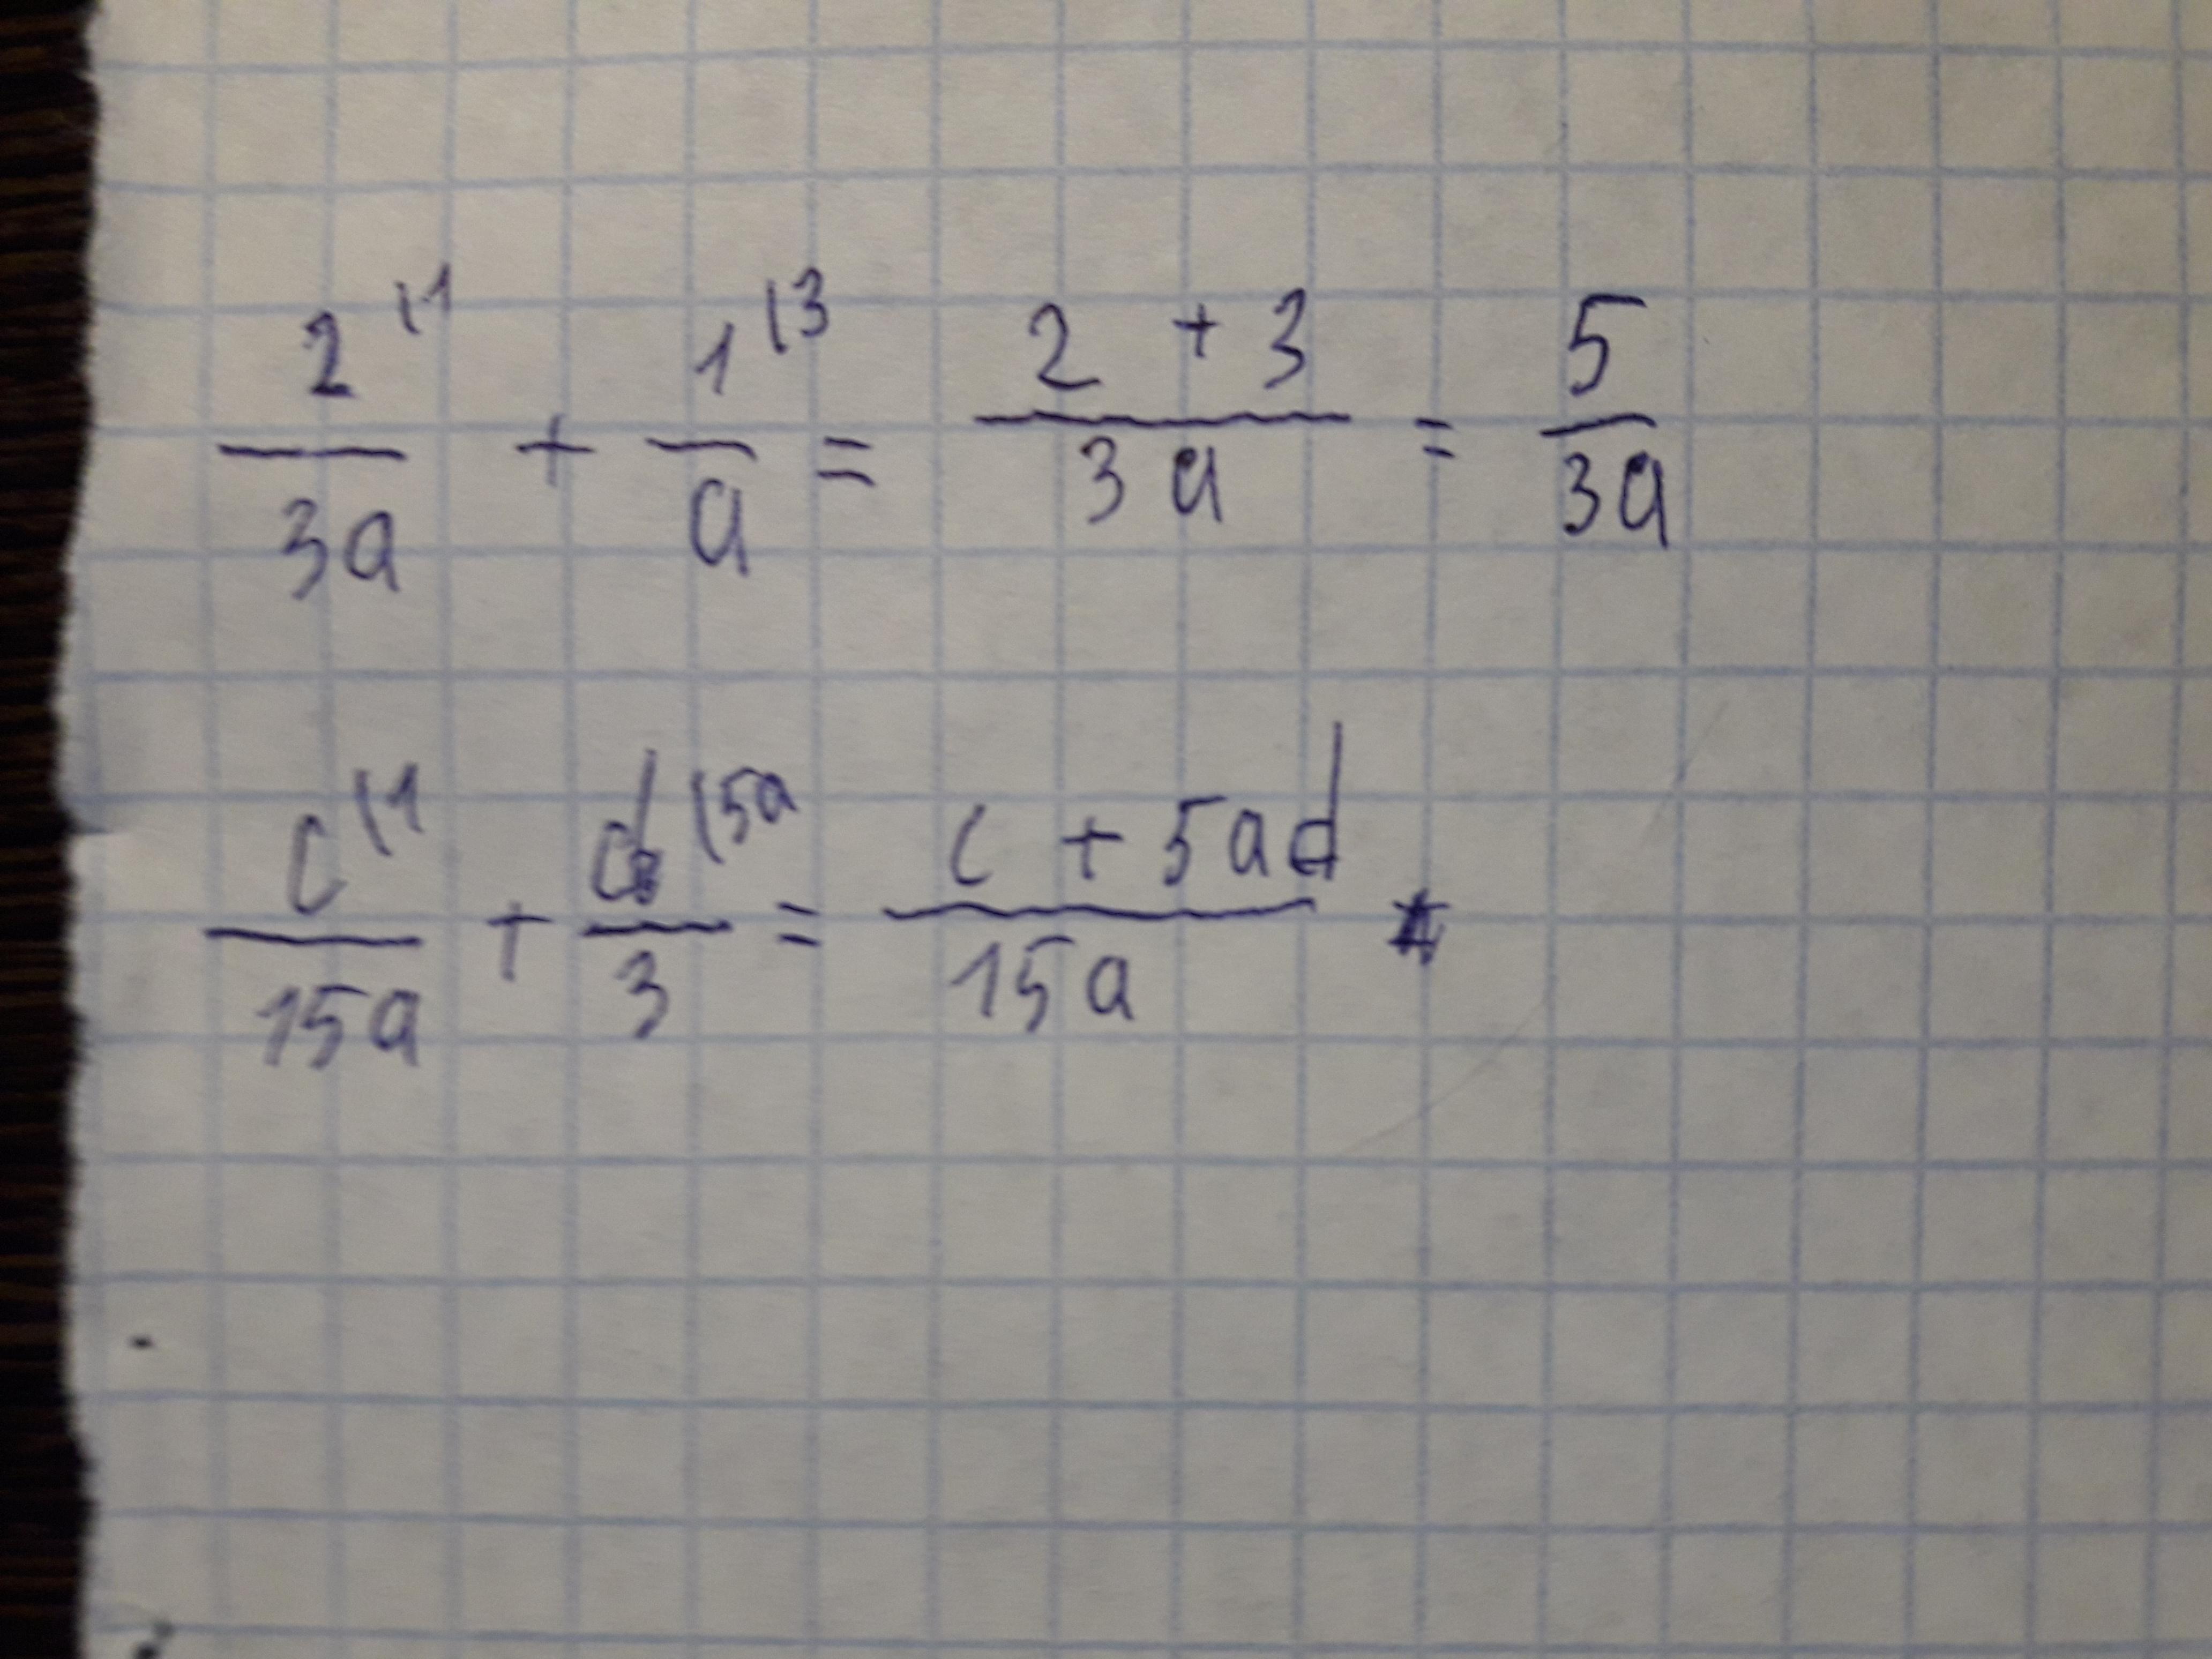 2\1/3a + 1\3/a = 2 + 3/3a = 5/3a
c\1/15a + d\5a/3 = c + 5ad/15a